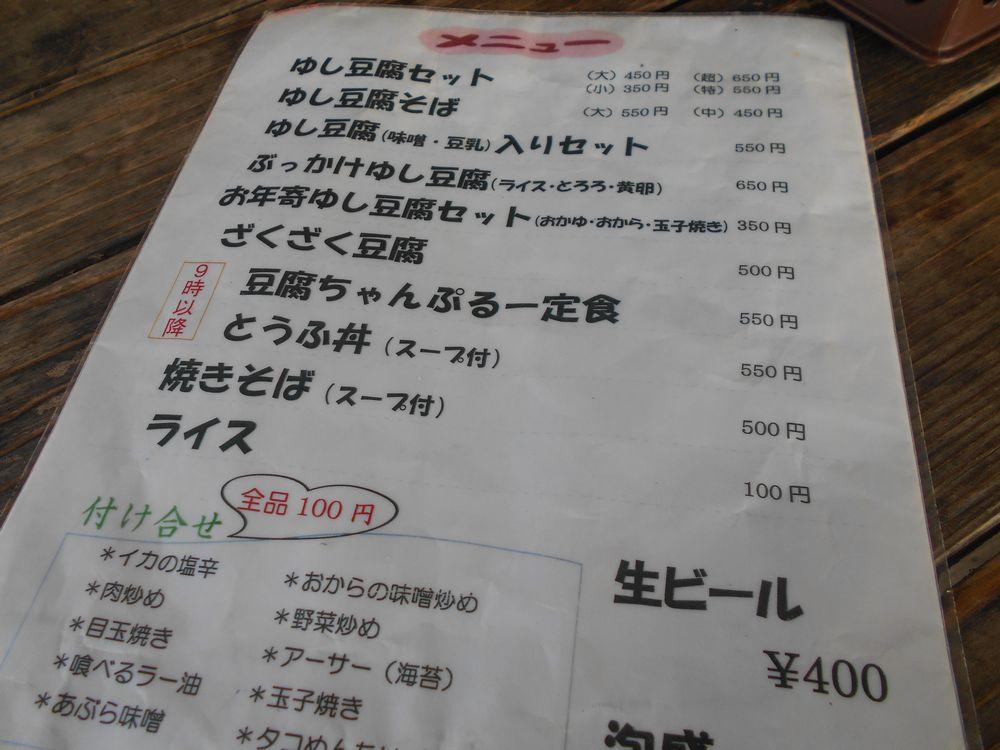 メニュー
ゆし豆腐セット （大）450円 （超）650円
（小）350円 （特）550円
ゆし豆腐そば （大）550円 （中）450円
ゆし豆腐(味噌・豆乳)入りセット 550円
ぶっかけゆし豆腐(ライス・とろろ・黄卵) 650円
お年寄ゆし豆腐セット(おかゆ・おから・玉子焼き) 350円
ざくざく豆腐 500円
9時以降
豆腐ちゃんぷるー定食 550円
とうふ丼（スープ付） 550円
焼きそば（スープ付） 500円
ライス 100円
付け合せ 全品100円
＊イカの塩辛
＊肉炒め
＊目玉焼き
＊喰べるラー油
＊あぶら味噌
＊おからの味噌炒め
＊野菜炒め
＊アーサー（海苔）
＊玉子焼き
＊タコめんたい
生ビール
¥400
泡盛